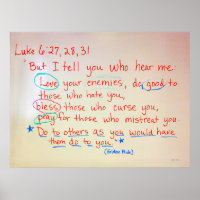 Luke 6:27, 28, 31
"But I tell you who hear me:
Love your enemies, do good to
those who hate you,
bless those who curse you,
pray for those who mistreat you.
Do to others as you would have
them do to you."
(Golden Rule)